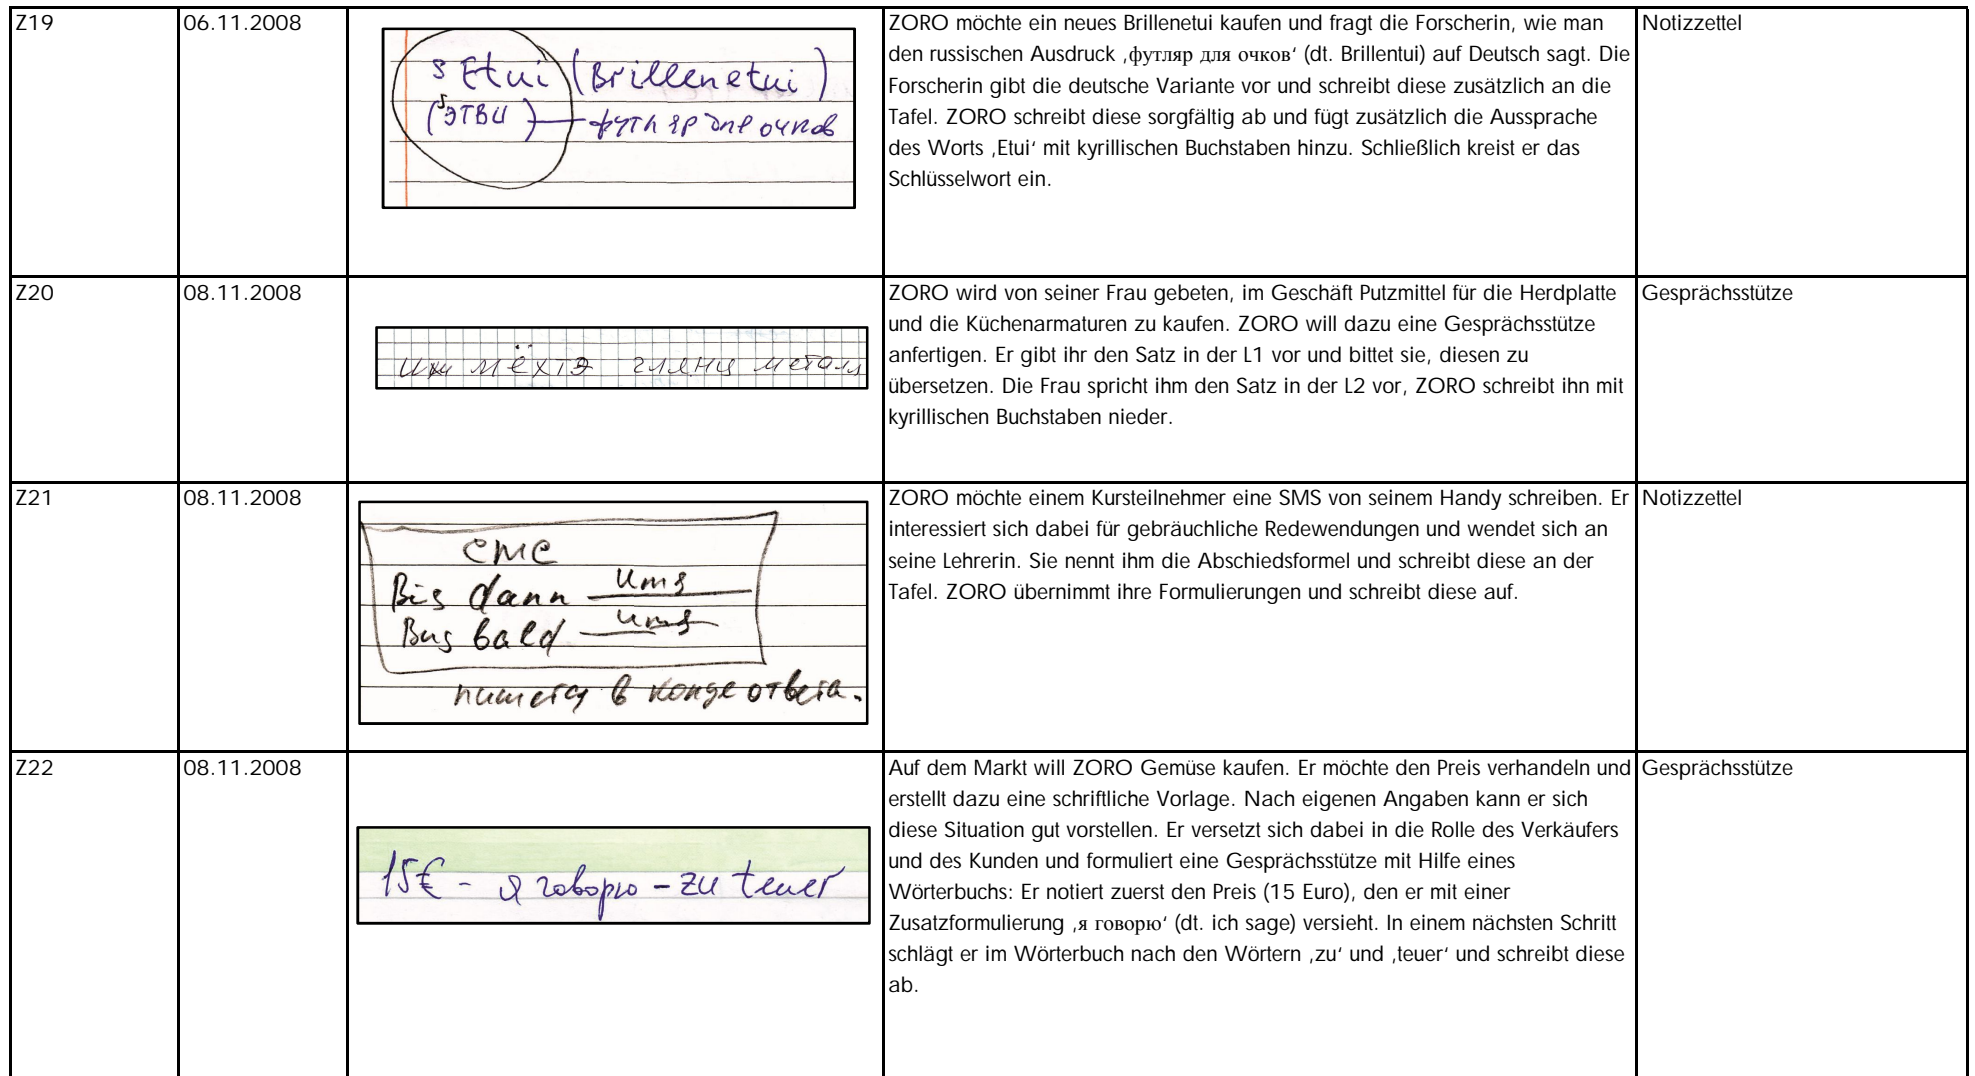 Z19
06.11.2008
s Etui (Brillenetui)
(ЭТВИ) — футляр для очков
ZORO möchte ein neues Brillenetui kaufen und fragt die Forscherin, wie man
den russischen Ausdruck ‚футляр для очков‘ (dt. Brillentui) auf Deutsch sagt. Die
Forscherin gibt die deutsche Variante vor und schreibt diese zusätzlich an die
Tafel. ZORO schreibt diese sorgfältig ab und fügt zusätzlich die Aussprache
des Worts ‚Etui‘ mit kyrillischen Buchstaben hinzu. Schließlich kreist er das
Schlüsselwort ein.
Notizzettel
Z20
08.11.2008
мёхтэ глянц металл
ZORO wird von seiner Frau gebeten, im Geschäft Putzmittel für die Herdplatte
und die Küchenarmaturen zu kaufen. ZORO will dazu eine Gesprächsstütze
anfertigen. Er gibt ihr den Satz in der L1 vor und bittet sie, diesen zu
übersetzen. Die Frau spricht ihm den Satz in der L2 vor, ZORO schreibt ihn mit
kyrillischen Buchstaben nieder.
Gesprächsstütze
Z21
08.11.2008
смс
Bis dann
Bus bald
пишется в конце ответа.
ZORO möchte einem Kursteilnehmer eine SMS von seinem Handy schreiben. Er
interessiert sich dabei für gebräuchliche Redewendungen und wendet sich an
seine Lehrerin. Sie nennt ihm die Abschiedsformel und schreibt diese an der
Tafel. ZORO übernimmt ihre Formulierungen und schreibt diese auf.
Notizzettel
Z22
08.11.2008
15€ - я говорю - zu teuer
Auf dem Markt will ZORO Gemüse kaufen. Er möchte den Preis verhandeln und
erstellt dazu eine schriftliche Vorlage. Nach eigenen Angaben kann er sich
diese Situation gut vorstellen. Er versetzt sich dabei in die Rolle des Verkäufers
und des Kunden und formuliert eine Gesprächsstütze mit Hilfe eines
Wörterbuchs: Er notiert zuerst den Preis (15 Euro), den er mit einer
Zusatzformulierung ‚я говорю‘ (dt. ich sage) versieht. In einem nächsten Schritt
schlägt er im Wörterbuch nach den Wörtern ‚zu‘ und ‚teuer‘ und schreibt diese
ab.
Gesprächsstütze